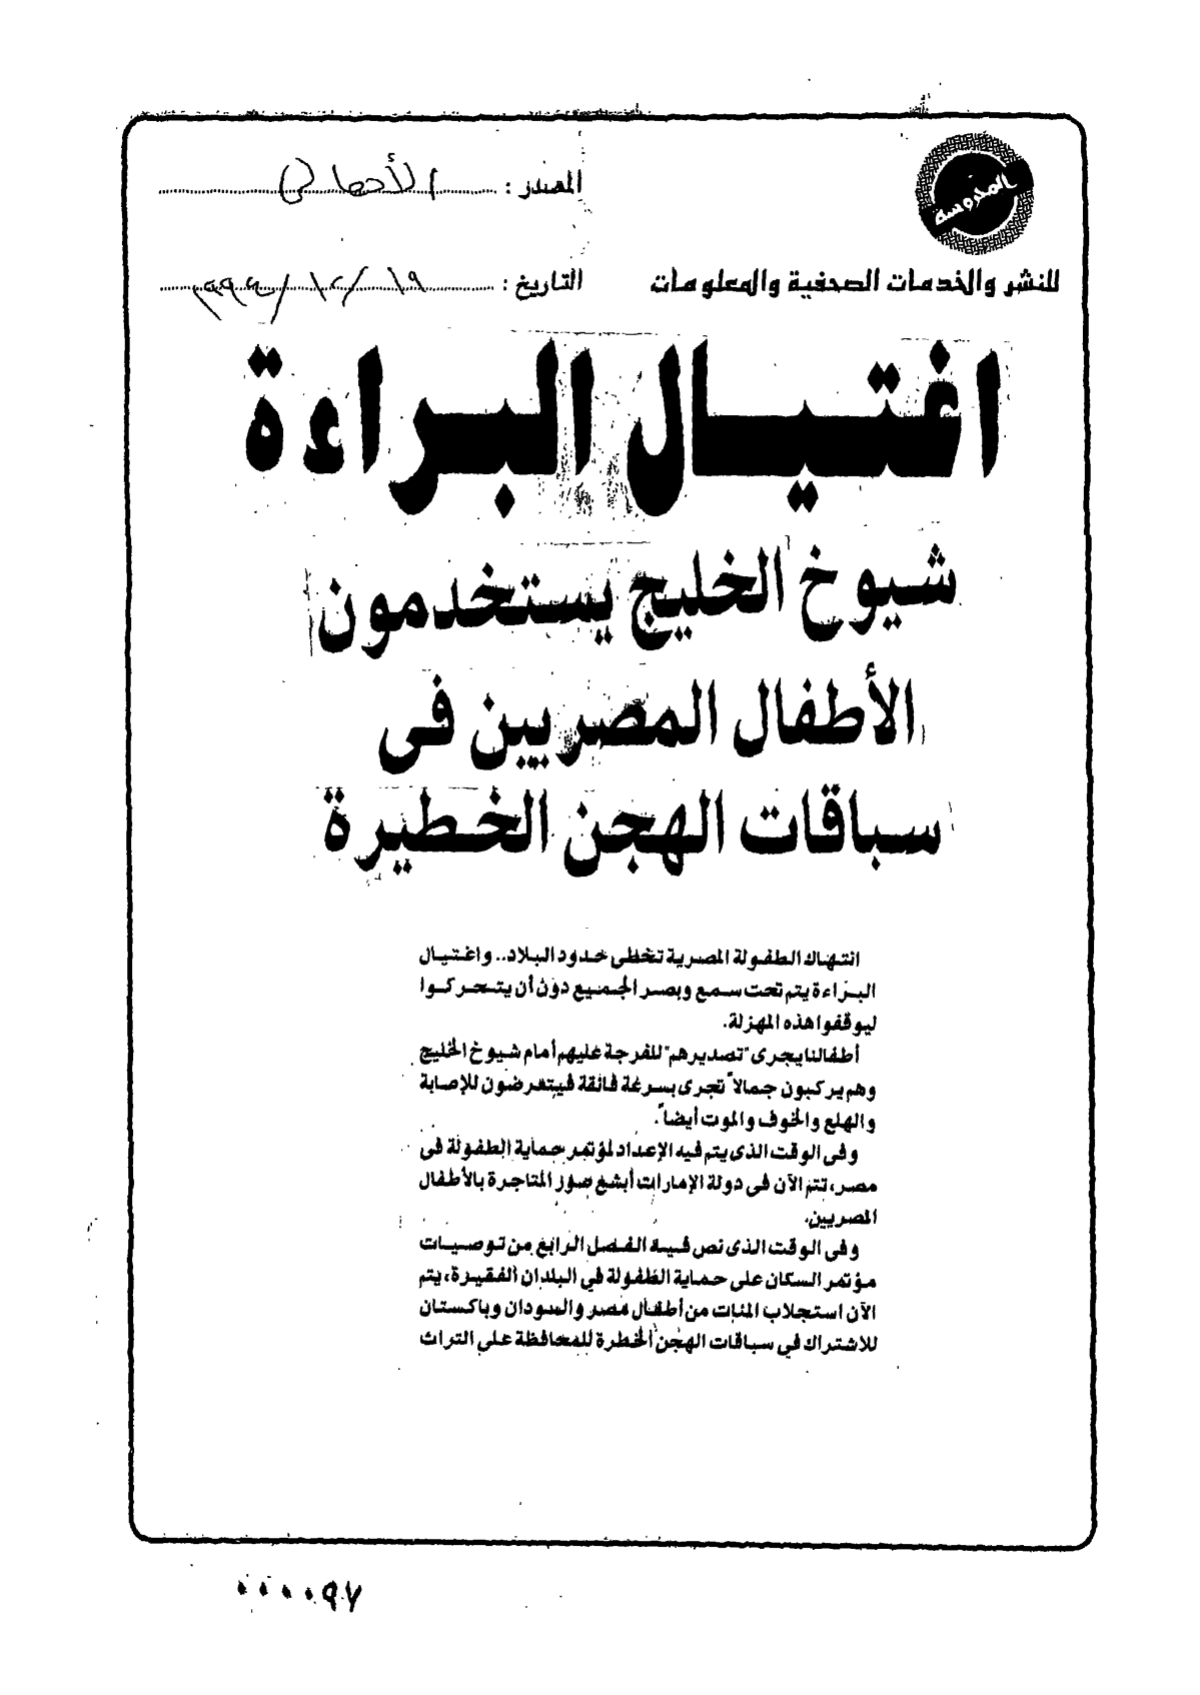 المحروسة
المصدر : الأهالى
للنشر والخدمات الصحفية والمعلومات
التاريخ : ١٩/١٢/
اغتيال البراءة
شيوخ الخليج يستخدمون
الأطفال المصريين فى
سباقات الهجن الخطيرة
انتهاك الطفولة المصرية تخطى حدود البلاد.. واغتيال
البراءة يتم تحت سمع وبصر الجميع دون أن يتحركوا
ليوقفوا هذه المهزلة.
أطفالنا يجرى "تصديرهم" للفرجة عليهم أمام شيوخ الخليج
وهم يركبون جمالاً تجرى بسرعة فائقة فيتعرضون للإصابة
والهلع والخوف والموت أيضاً.
وفى الوقت الذى يتم فيه الإعداد لمؤتمر حماية الطفولة فى
مصر، تتم الآن فى دولة الإمارات أبشع صور المتاجرة بالأطفال
المصريين.
وفى الوقت الذى نص فيه الفصل الرابع من توصيات
مؤتمر السكان على حماية الطفولة في البلدان الفقيرة، يتم
الآن استجلاب المئات من أطفال مصر والسودان وباكستان
للاشتراك في سباقات الهجن الخطرة للمحافظة على التراث
٠٠٠٠٩٧